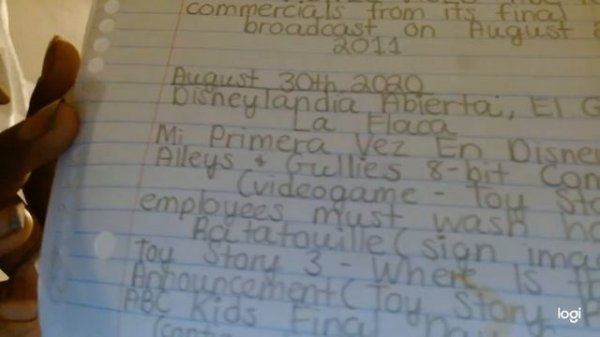 commercials from its final
broadcast on August
2011
August 30th 2020
Disneylandia Abierta, El G
La Flaca
Mi Primera Vez En Disne
Alleys & Gullies 8-bit Com
(videogame - Toy Sto
employees must wash ha
Ratatouille (sign ima
Toy Story 3 - Where Is th
Announcement (Toy Story
ABC Kids Final Day
logi